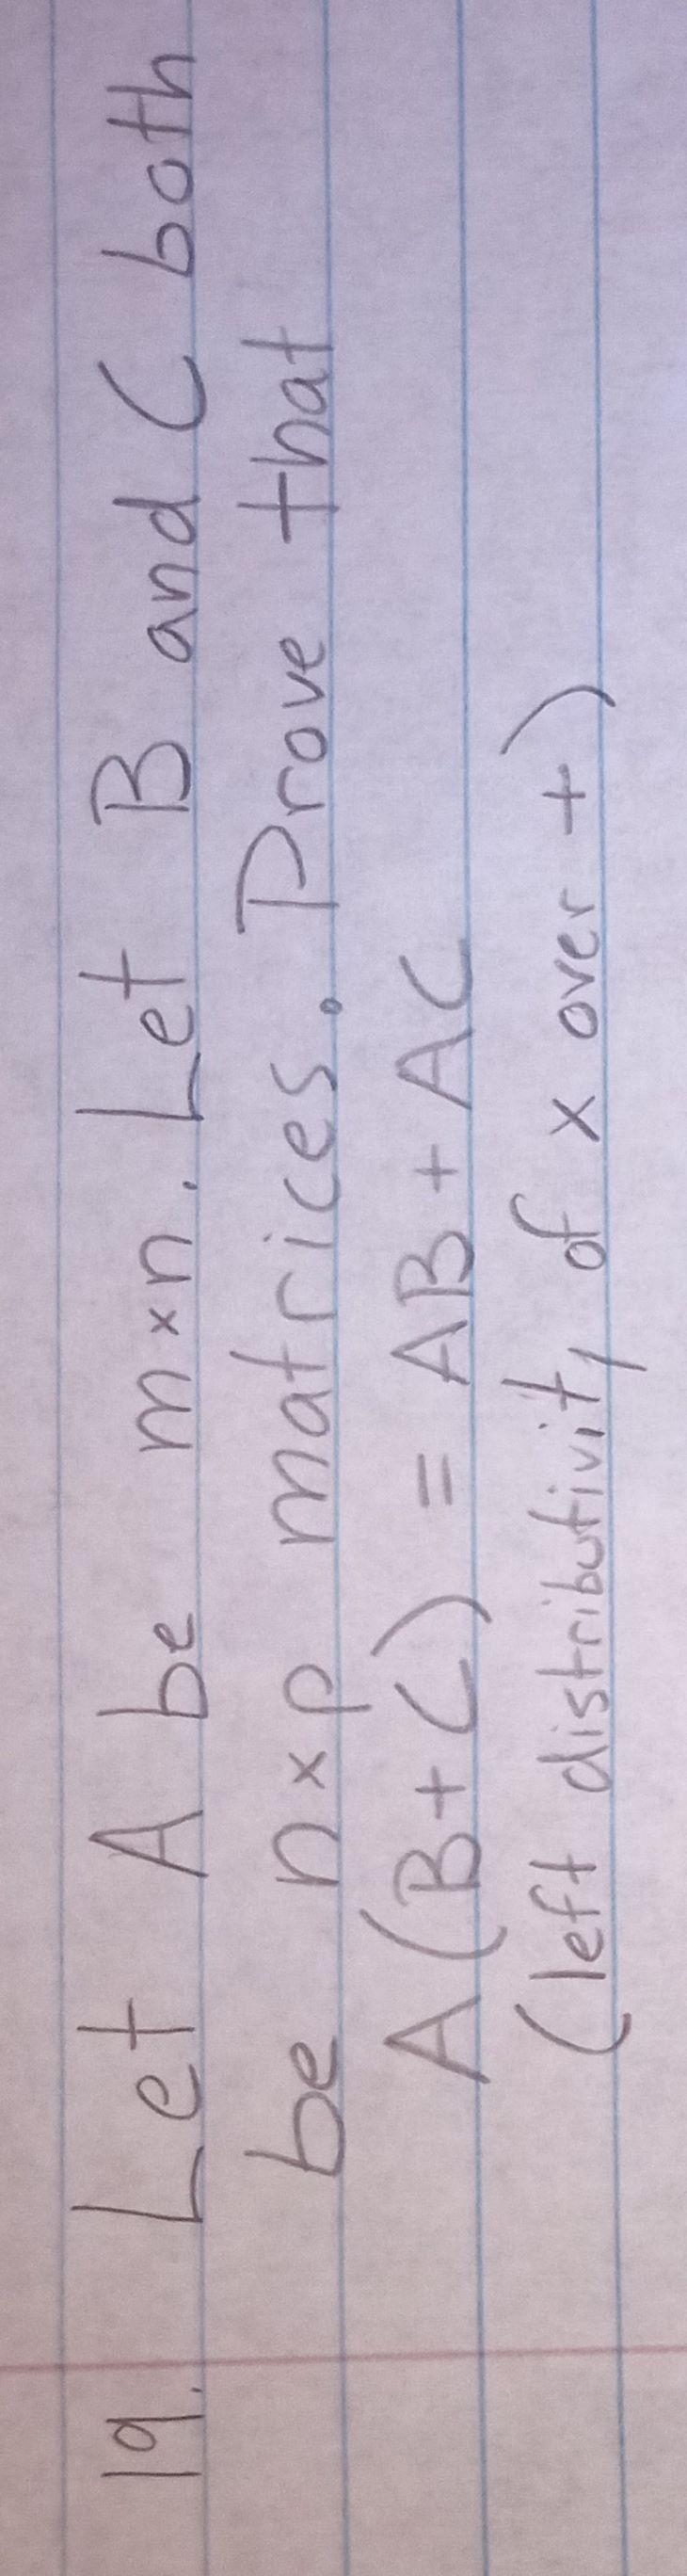 19. Let A be m×n. Let B and C both
be n×p matrices. Prove that
A(B+C) = AB + AC
(left distributivity of × over +)